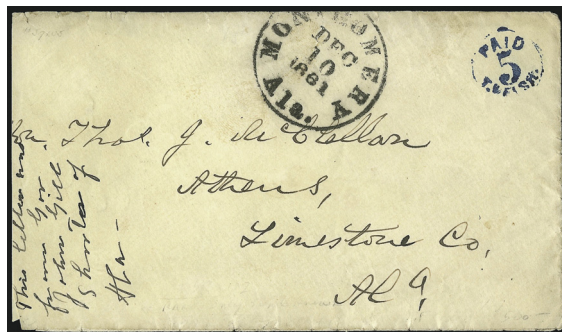 MONTGOMERY Ala.
DEC
10
1861
PAID
5
T. WELSH.
Hon. Thos. J. McClellan
Athens,
Limestone Co,
Ala,
This letter was
from Gov
John Gill
Shorter of
Ala -